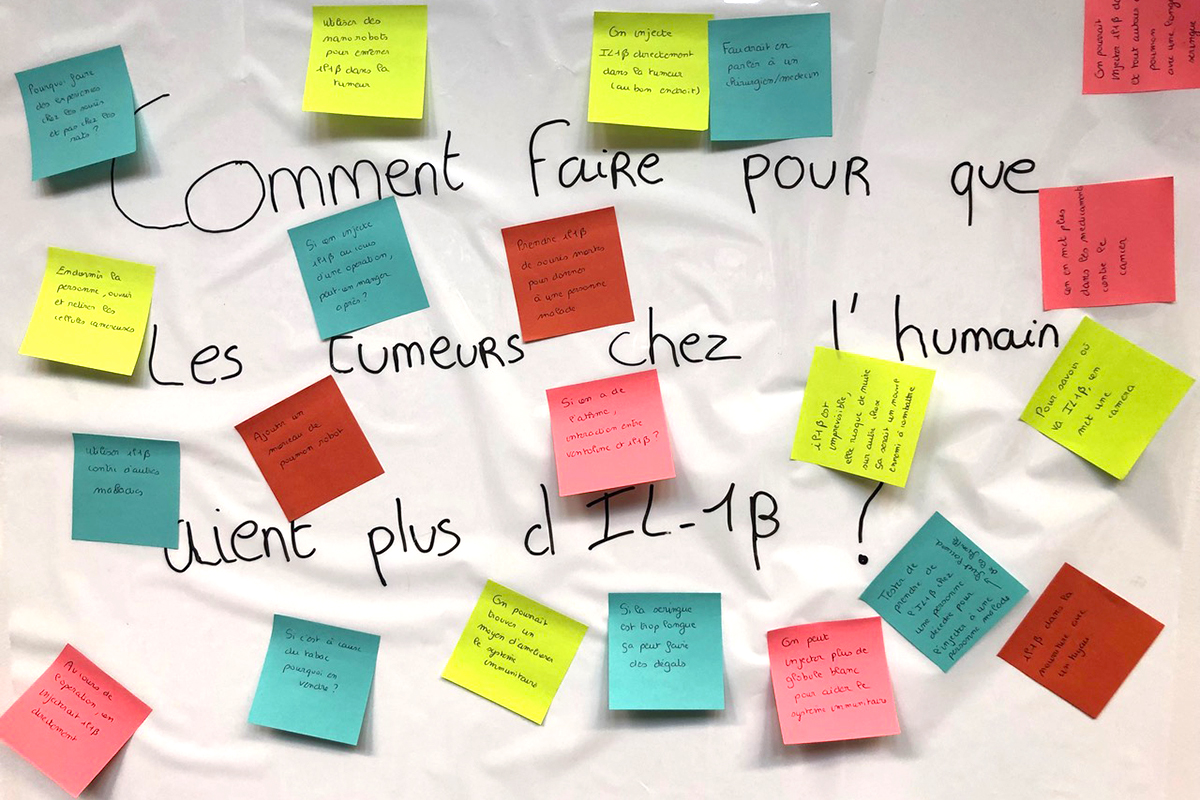 Comment faire pour que
Les tumeurs chez l'humain
aient plus d IL-1β ?
Pourquoi faire
des expériences
chez les souris
et pas chez les
rats ?
Utiliser des
nano robots
pour emener
il1β dans la
tumeur
On injecte
IL1β directement
dans la tumeur
(au bon endroit)
Faudrait en
parler à un
chirurgien/medecin
On pourrait
injecter il1β de
et tout autour
poumon
avec une longue
seringue
Endormir la
personne, ouvrir
et retirer les
cellules cancereuses
Si on injecte
il1β au cours
d'une opération,
peut-on manger
après ?
Prendre il1β
de souris mortes
pour donner
à une personne
malade
on en met plus
dans les médicaments
contre le
cancer
Ajouter un
morceau de
poumon robot
Si on a de
l'atsme,
interaction entre
ventoline et il1β ?
il1β est
imprévisible,
elle risque de nuire
sur autre chose
ça serait un nouvel
ennemi à combattre
Pour savoir où
va IL1β, on
met une
caméra
Utiliser il1β
contre d'autres
maladies
Au cours de
l'opération, on
injecterait il1β
directement
Si c'est à cause
du tabac
pourquoi on
vendre ?
On pourrait
trouver un
moyen d'améliorer
le système
immunitaire
Si la seringue
est trop longue
ça peut faire
des dégats
On peut
injecter plus de
globule blanc
pour aider le
système immunitaire
Tester de
prendre de
l'IL1β chez
une personne
décédée pour
l'injecter à une
personne malade
il1β dans la
nourriture avec
un tuyau